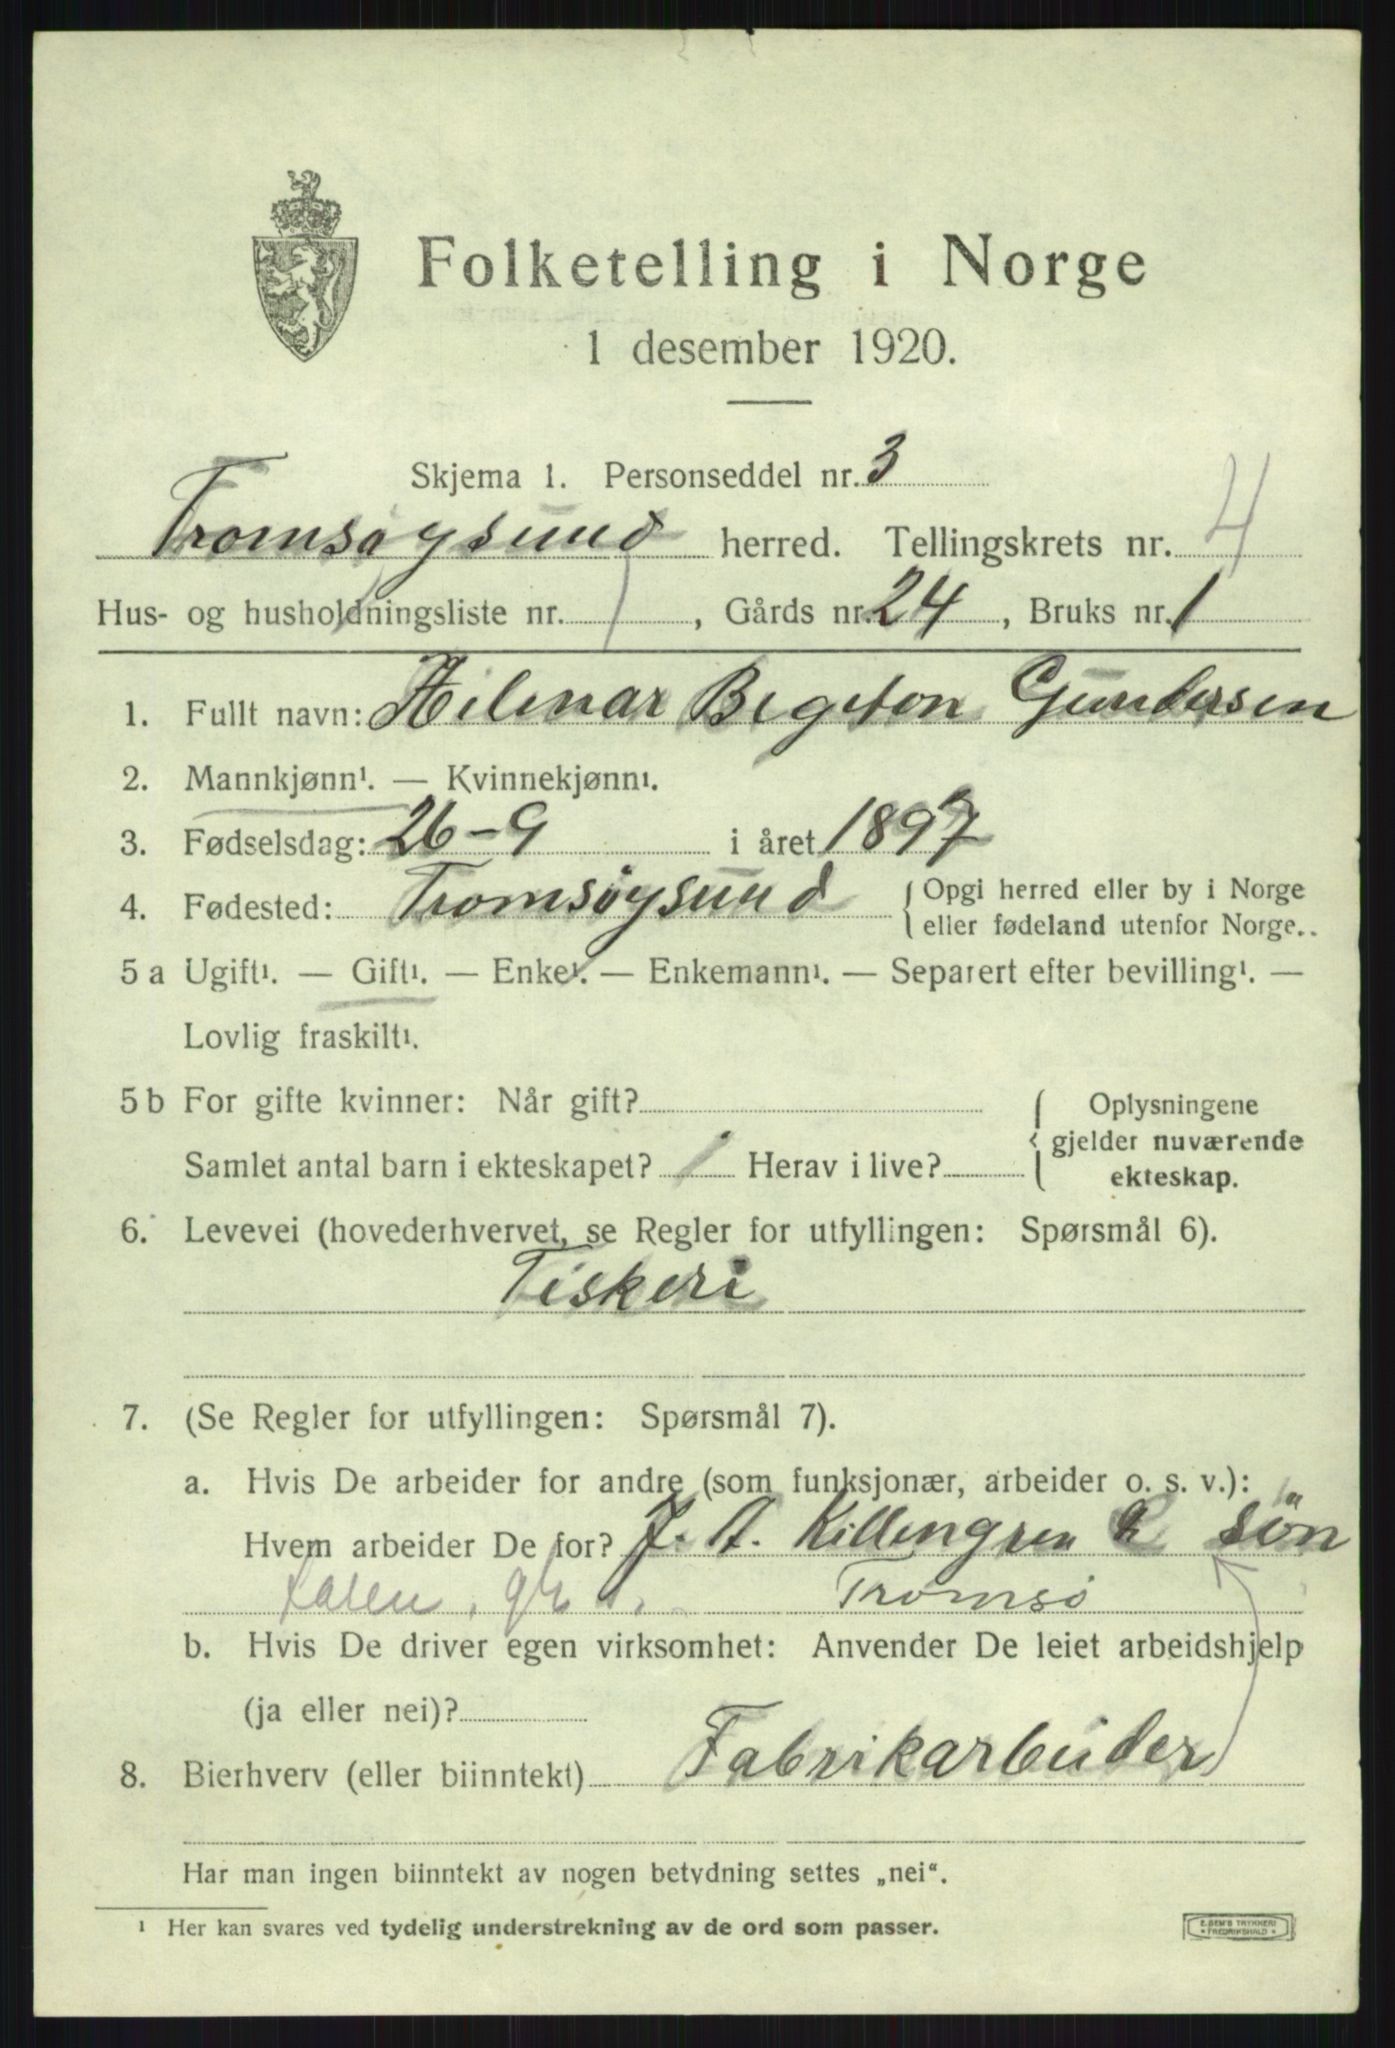 Folketelling i Norge
1 desember 1920.
Skjema 1. Personseddel nr. 3
Tromsøysund herred. Tellingskrets nr. 4
Hus- og husholdningsliste nr. 1, Gårds nr. 24, Bruks nr. 1
1. Fullt navn: Hilmar Bigeton Gundersen
2. Mannkjønn¹. — Kvinnekjønn¹.
3. Fødselsdag: 26-9 i året 1897
4. Fødested: Tromsøysund {Opgi herred eller by i Norge
eller fødeland utenfor Norge..
5 a Ugift¹. — Gift¹. — Enke¹. — Enkemann¹. — Separert efter bevilling¹. —
Lovlig fraskilt¹.
5 b For gifte kvinner: Når gift?
Oplysningene
gjelder nuværende
ekteskap.
Samlet antal barn i ekteskapet? 1 Herav i live?
6. Levevei (hovederhvervet, se Regler for utfyllingen: Spørsmål 6).
Fiskeri
7. (Se Regler for utfyllingen: Spørsmål 7).
a. Hvis De arbeider for andre (som funksjonær, arbeider o. s. v.):
Hvem arbeider De for? J. A. Killengren & søn
Tromsø
b. Hvis De driver egen virksomhet: Anvender De leiet arbeidshjelp
(ja eller nei)?
8. Bierhverv (eller biinntekt) Fabrikarbeider
Har man ingen biinntekt av nogen betydning settes „nei".
¹ Her kan svares ved tydelig understrekning av de ord som passer.
E. SEM'S TRYKKERI
* FREDRIKSHALD *